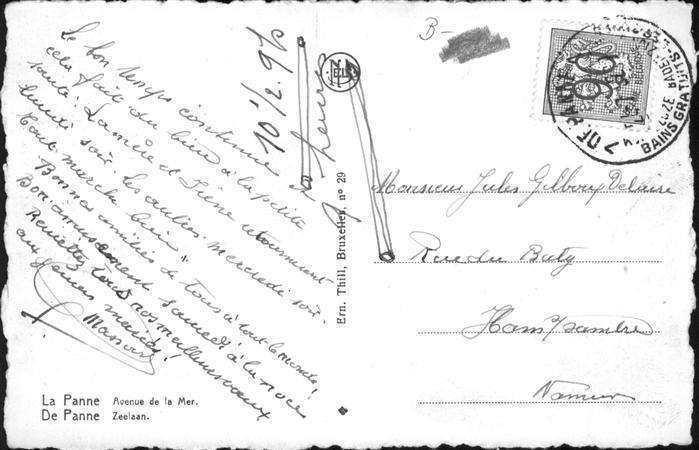 Le bon temps continue
cela fait du bien à la petite
santé. La mère et Irène retournent
sur les mercredi soir.
Tout marche bien
Bonnes amitiés de tous à tout le monde!
Bon amusement samedi à la noce
Remettez tous nos meilleurs vœux
aux jeunes mariés!
10
heures
B-
90
BAINS GRATUITS
Monsieur Jules Gilboux Delaire
Rue du Baty
Ham s/Sambre
Namur
Ern. Thill, Bruxelles, nº 29
La Panne Avenue de la Mer.
De Panne Zeelaan.